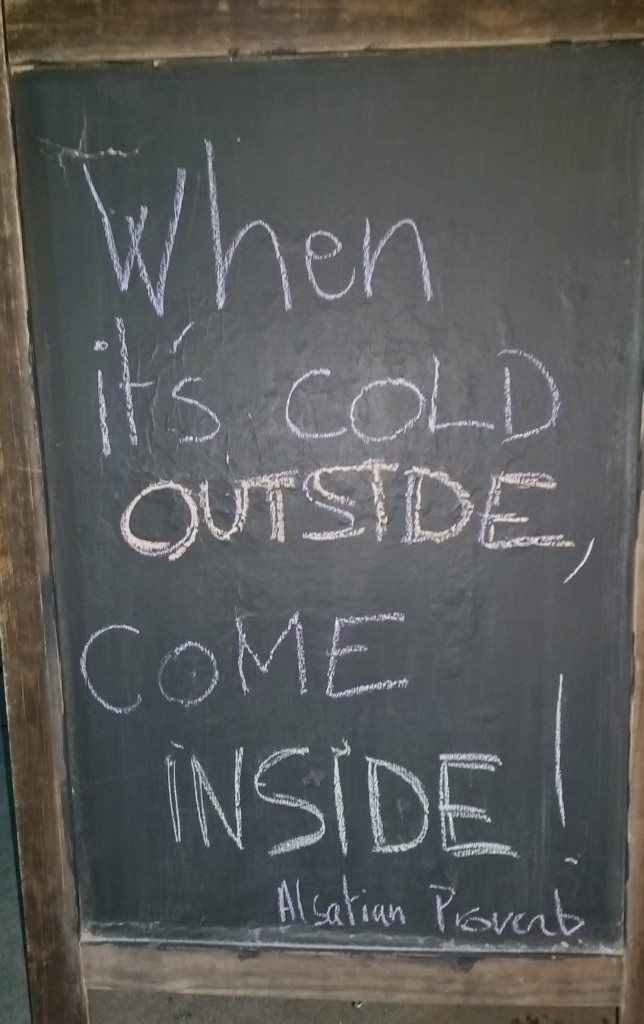 When
it's COLD
OUTSIDE,
COME
INSIDE!
Alsatian Proverb